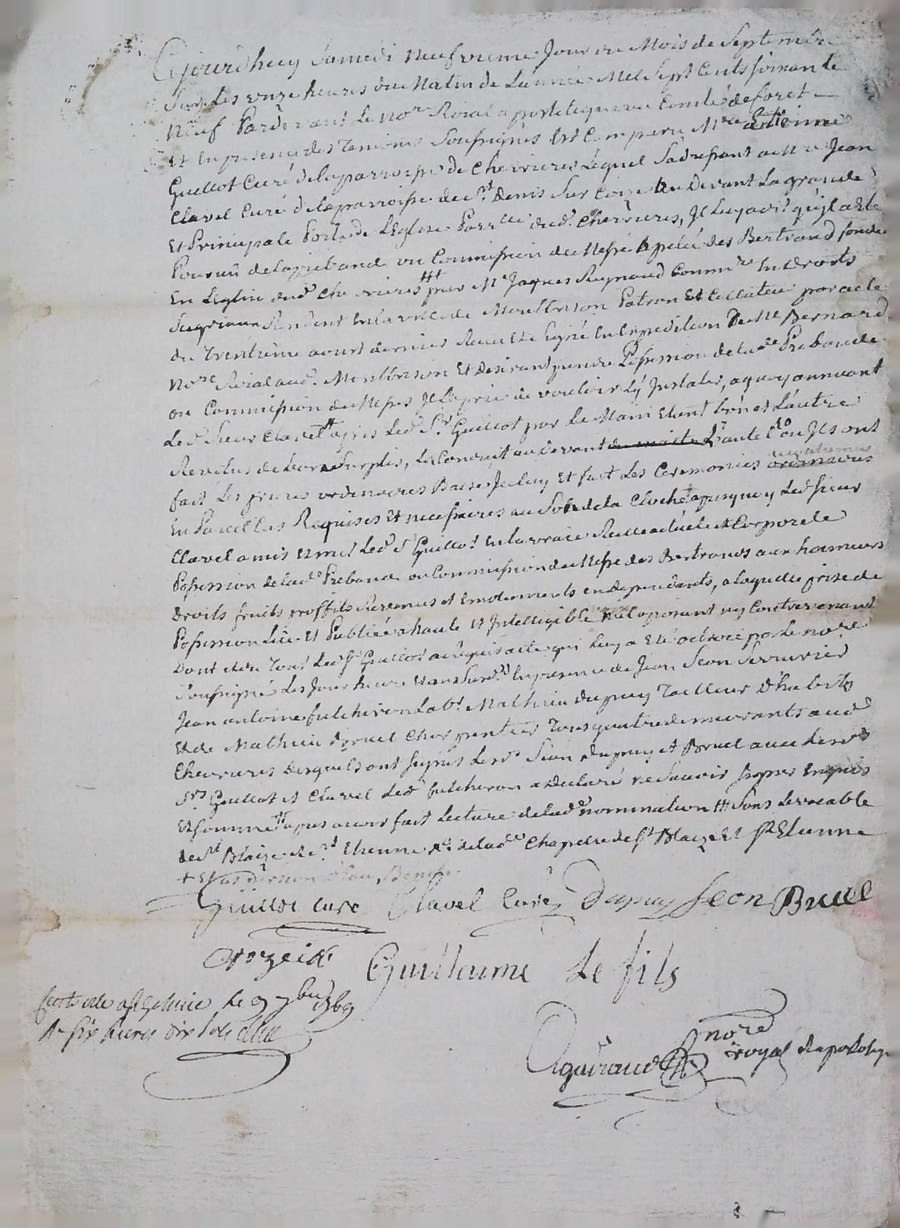 Cejourdhuy Samedi Neufvieme Jour du Mois de Septembre
Sur Les onze heures du Matin de L'année Mil Sept Cents soixante
Neuf Pardevant Le nore Roial a portelequeue Comté de foret
Et En presence des Temoins Soussignés Est Comparu Mre Etienne
Guillot Curé de la parroisse de Chevrieres Lequel Sadressant a Mre Jean
Clavel Curé de la parroisse de St Denis Sur Coise Au Devant La grande
Et Principale Porte de L'Eglise Parrlle dud. Chevrieres, Il Luy a dit qu'il a Eté
Pourvu de la prebande ou Commission de Messe Apelée des Bertrand fondée
En L'eglise dud. Chevrieres par Mr Jaques Reynaud Commre
Resident En la ville de Montbrison Patron Et Collateur par acte
du Trentieme aoust dernier Expedition De Me Bernard
Nore Roial aud. Montbrison Et desirant prendre Possession de lade Prebande
ou Commission de Messes Il La prié de vouloir L'y Installer, a quoy
Led. Sieur Clavel a pris Led. Sr Guillot par La Main Etant L'un et L'autre
Revetus de Leurs Surplis, La Conduit au Devant L'autel ou Ils ont
fait Les prieres ordinaires Baise Iceluy Et fait Les Ceremonies
En Pareil Cas Requises Et necessaires au Son de la Cloche apres quoy Led. Sieur
Clavel a mis Et met Led. Sr Guillot En la vraie Reelle actuelle et Corporele
Possession de lade Prebande ou Commission de Messe des Bertrands aux honneurs
Droits fruits proffits Revenus et Emoluments en dependants, a Laquelle prise de
Possession Lue Et Publiée a haute Et Intelligible
Dont et du Tout Led. Sr Guillot a requis acte qui Luy a Eté octroié par Le nore
Soussigné Les Jour heure Et an Susds En presence de Jean Seon Serrurier
Jean antoine fulchiron Labr Mathieu dupuy Tailleur D'habits
Et de Mathieu Bruel Charpentier Tous quatre demeurants aud.
Chevrieres Desquels ont Signés Lesds Seon Dupuy et Bruel avec Lesds
Srs Guillot et Clavel Led. fulchiron a Declaré ne Savoir Signer Enquis
Et Sommé apres avoir fait Lecture de lade nomination Sous Le vocable
de St Blaize Etienne de lade Chapelle de St Blaize Et St Etienne
Guillot curé Clavel Curé Dupuy Seon Bruel
Guillaume Le fils
le 9 7bre 1769
nore
royal